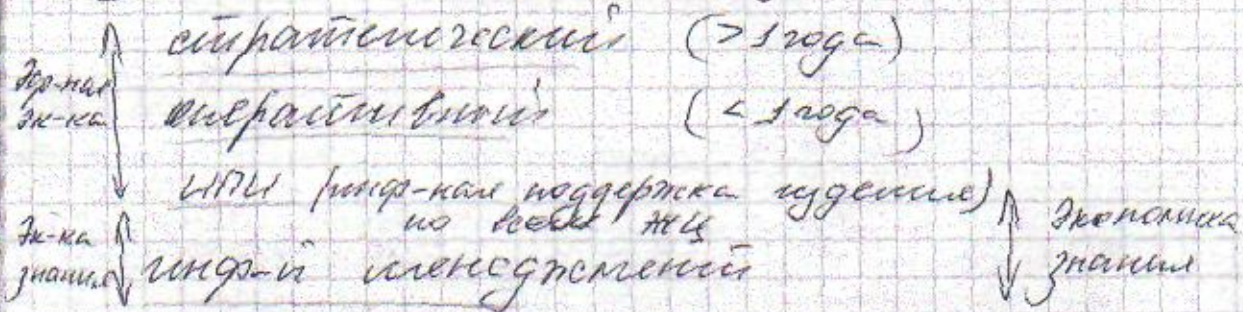 стратегический (>1 года)
Эф-ная эк-ка
оперативный (<1 года)
ИПИ (инф-ная поддержка изделия)
по всем ЖЦ
Эк-ка знания
инф-й менеджмент
Экономика знания